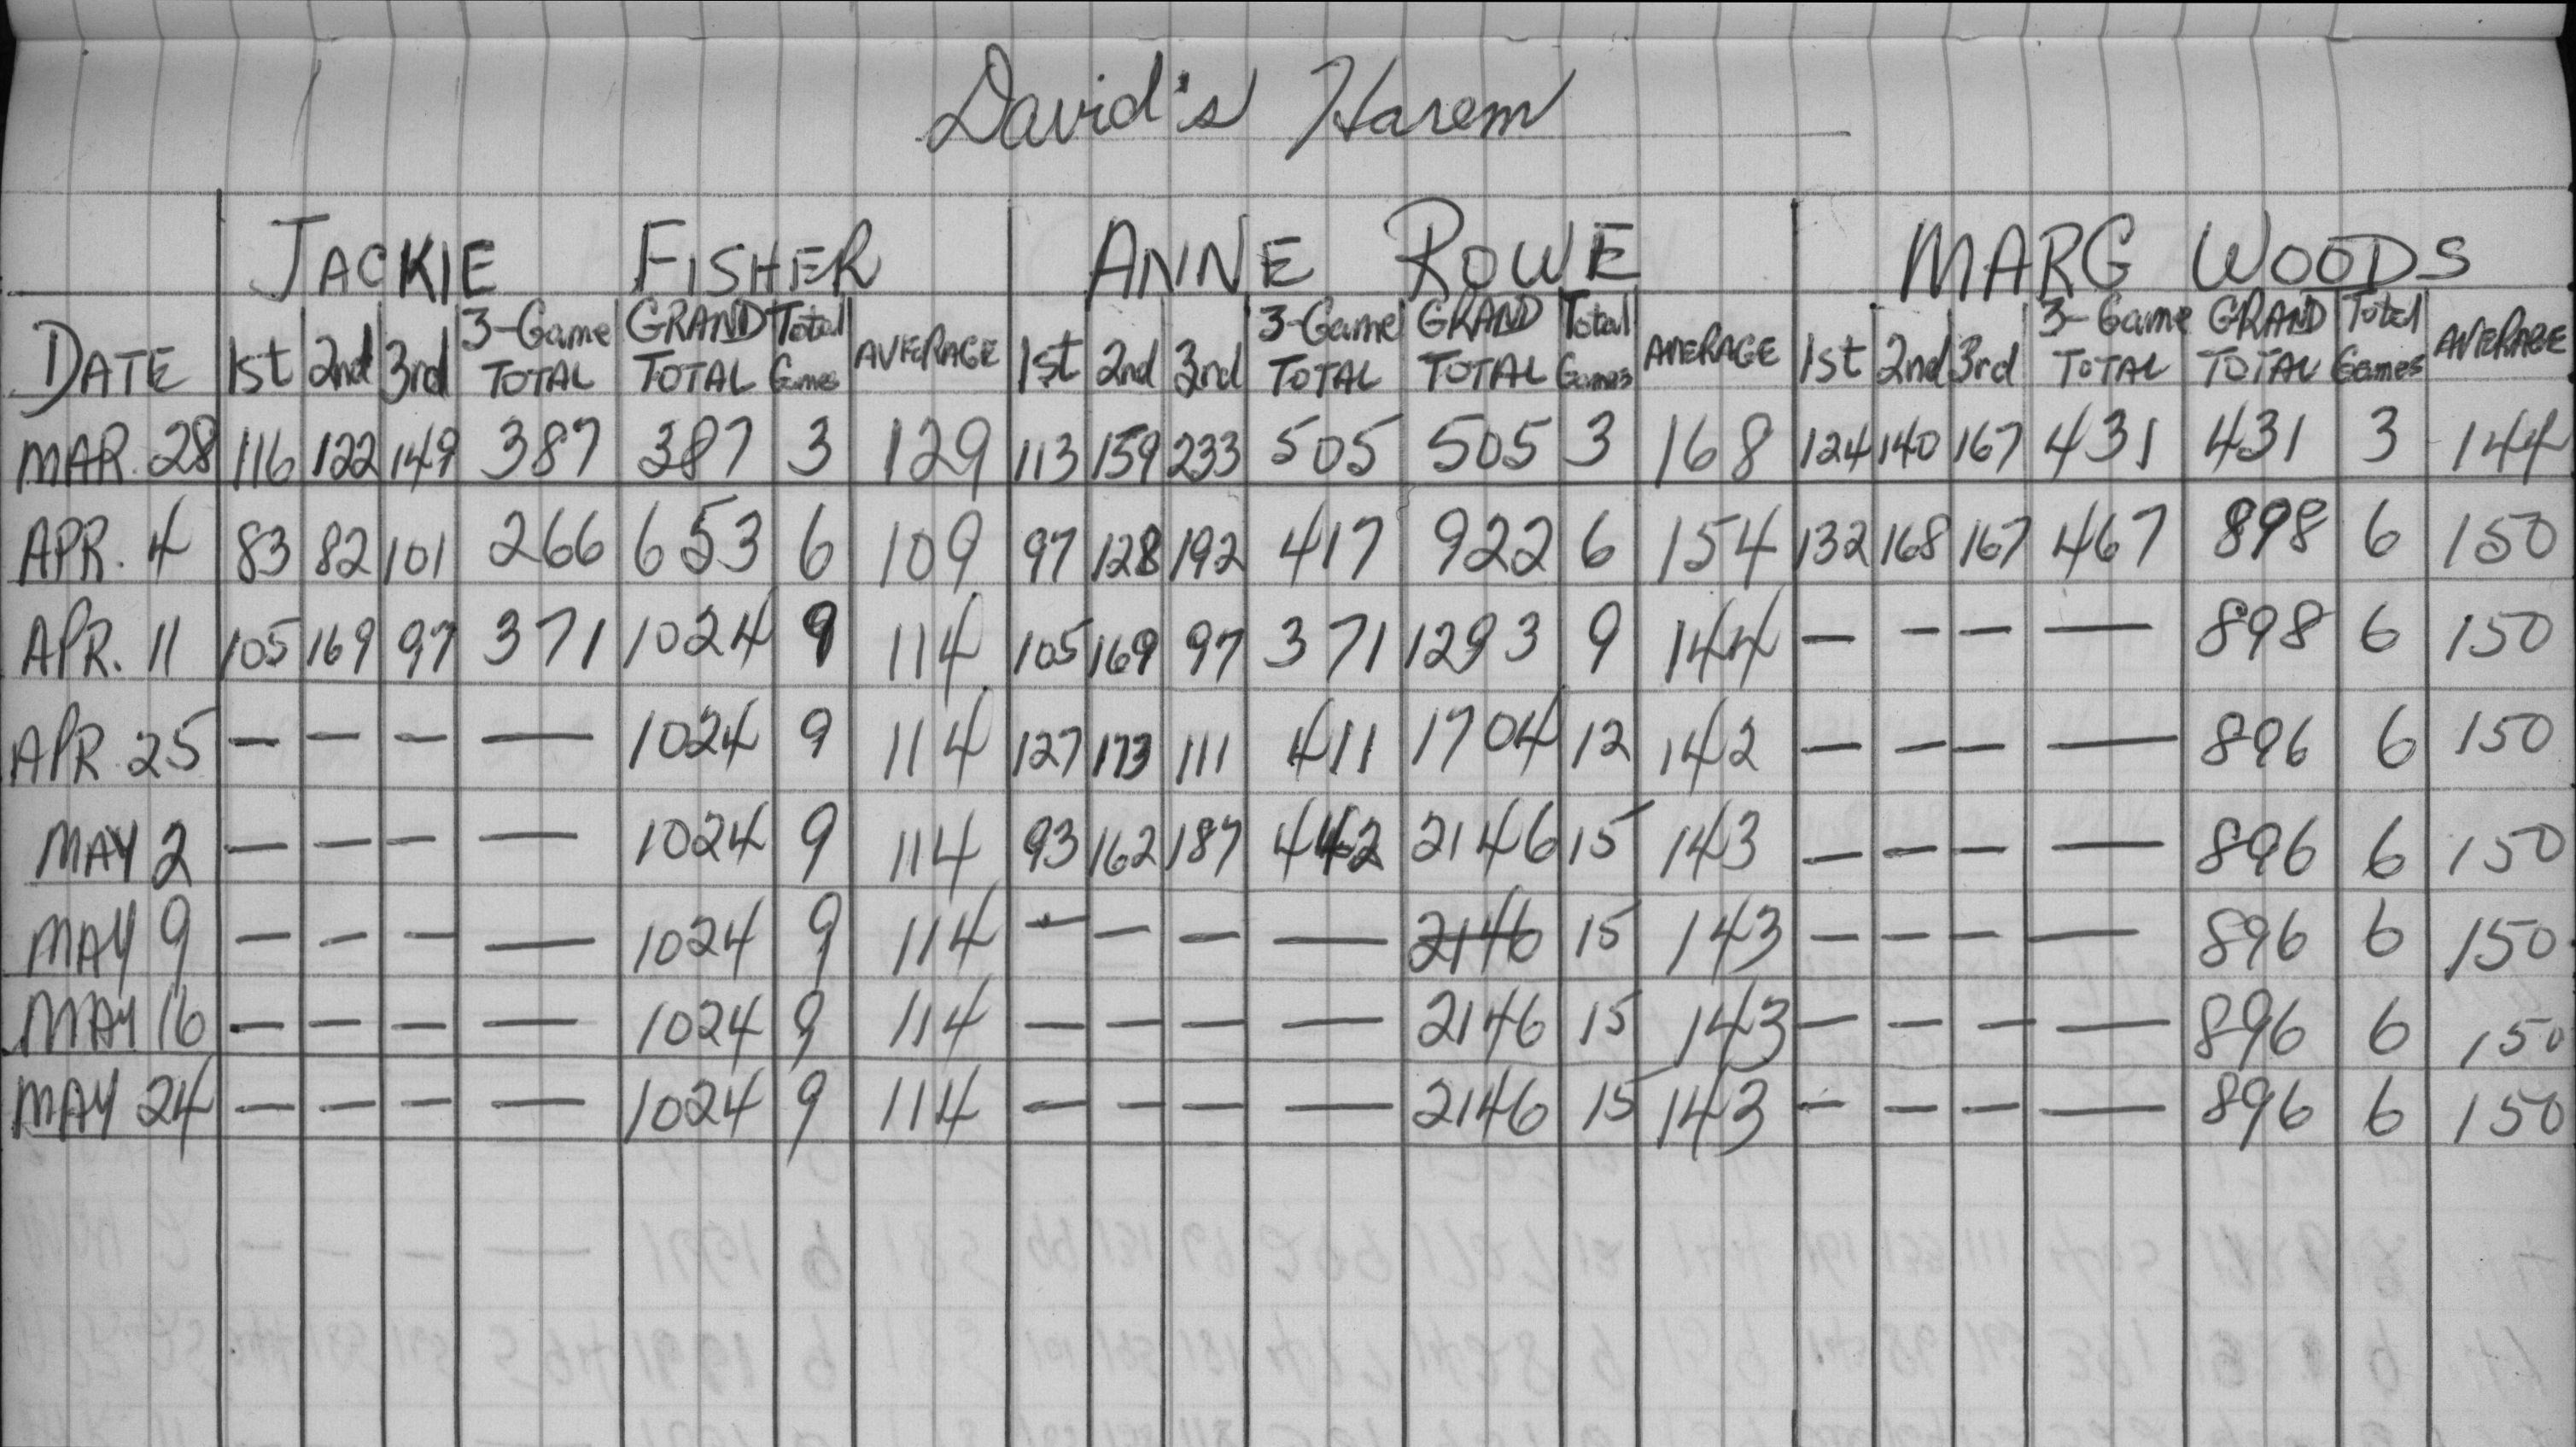 David's Harem
JACKIE FISHER ANNE ROWE MARG WOODS
DATE 1st 2nd 3rd 3-Game TOTAL GRAND TOTAL Total Games AVERAGE 1st 2nd 3rd 3-Game TOTAL GRAND TOTAL Total Games AVERAGE 1st 2nd 3rd 3-Game TOTAL GRAND TOTAL Total Games AVERAGE
MAR. 28 116 122 149 387 387 3 129 113 159 233 505 505 3 168 124 140 167 431 431 3 144
APR. 4 83 82 101 266 653 6 109 97 128 192 417 922 6 154 132 168 167 467 898 6 150
APR. 11 105 169 97 371 1024 9 114 105 169 97 371 1293 9 144 — — — — 898 6 150
APR 25 — — — — 1024 9 114 127 173 111 411 1704 12 142 — — — — 896 6 150
MAY 2 — — — — 1024 9 114 93 162 187 442 2146 15 143 — — — — 896 6 150
MAY 9 — — — — 1024 9 114 — — — — 2146 15 143 — — — — 896 6 150
MAY 16 — — — — 1024 9 114 — — — — 2146 15 143 — — — — 896 6 150
MAY 24 — — — — 1024 9 114 — — — — 2146 15 143 — — — — 896 6 150